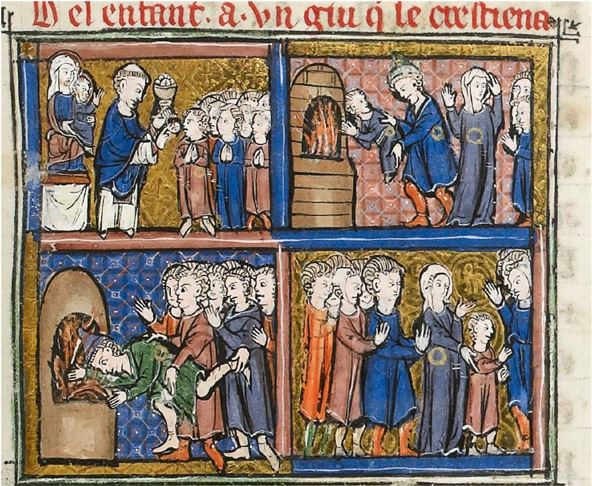 D el enfant. a. vn giu q̃ le crestiena